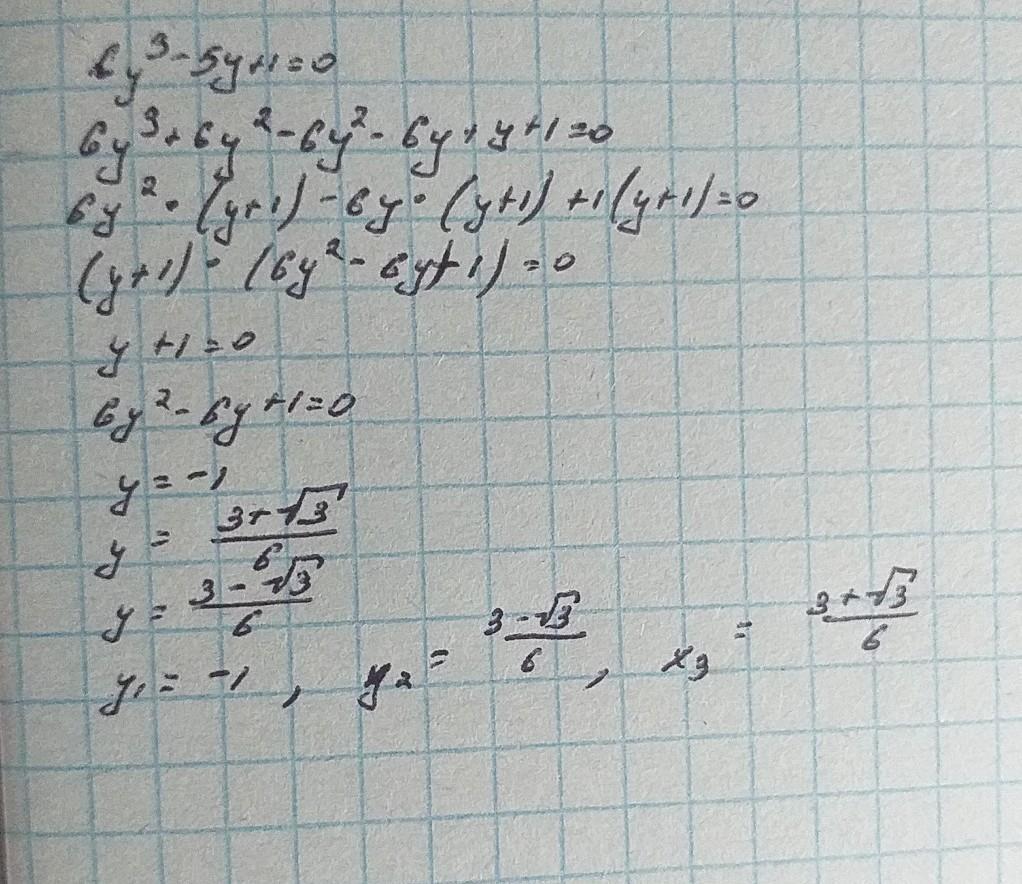 6y³-5y+1=0
6y³+6y²-6y²-6y+y+1=0
6y²·(y+1)-6y·(y+1)+1(y+1)=0
(y+1)·(6y²-6y+1)=0
y+1=0
6y²-6y+1=0
y=-1
y=(3+√3)/6
y=(3-√3)/6
y₁=-1, y₂=(3-√3)/6, x₃=(3+√3)/6